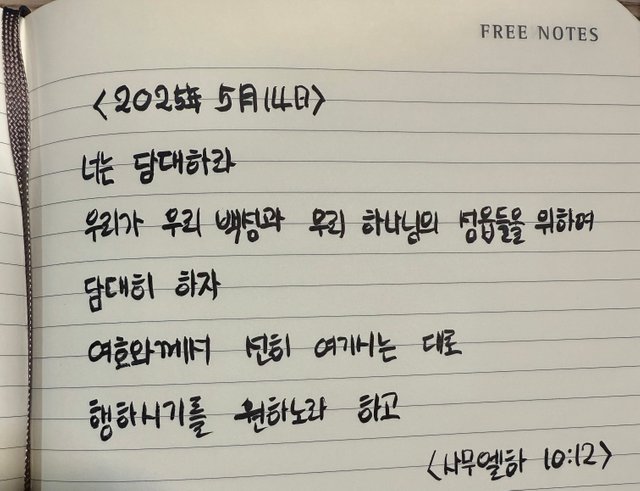 FREE NOTES
<2025年 5月 14日>
너는 담대하라
우리가 우리 백성과 우리 하나님의 성읍들을 위하여
담대히 하자
여호와께서 선히 여기시는 대로
행하시기를 원하노라 하고
<사무엘하 10:12>